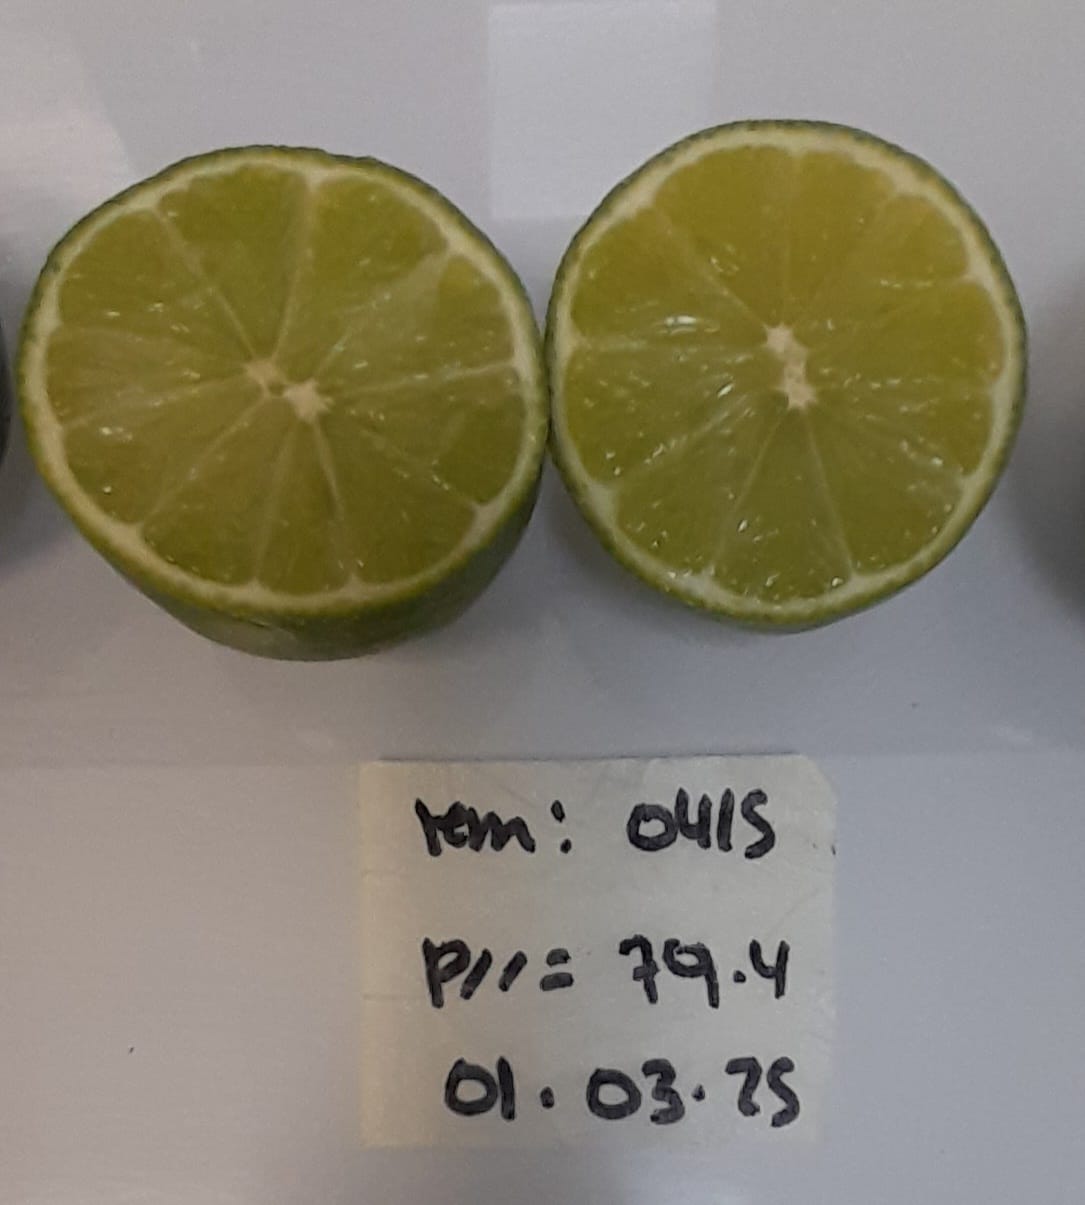 rem: 0415
P//= 79.4
01.03.25